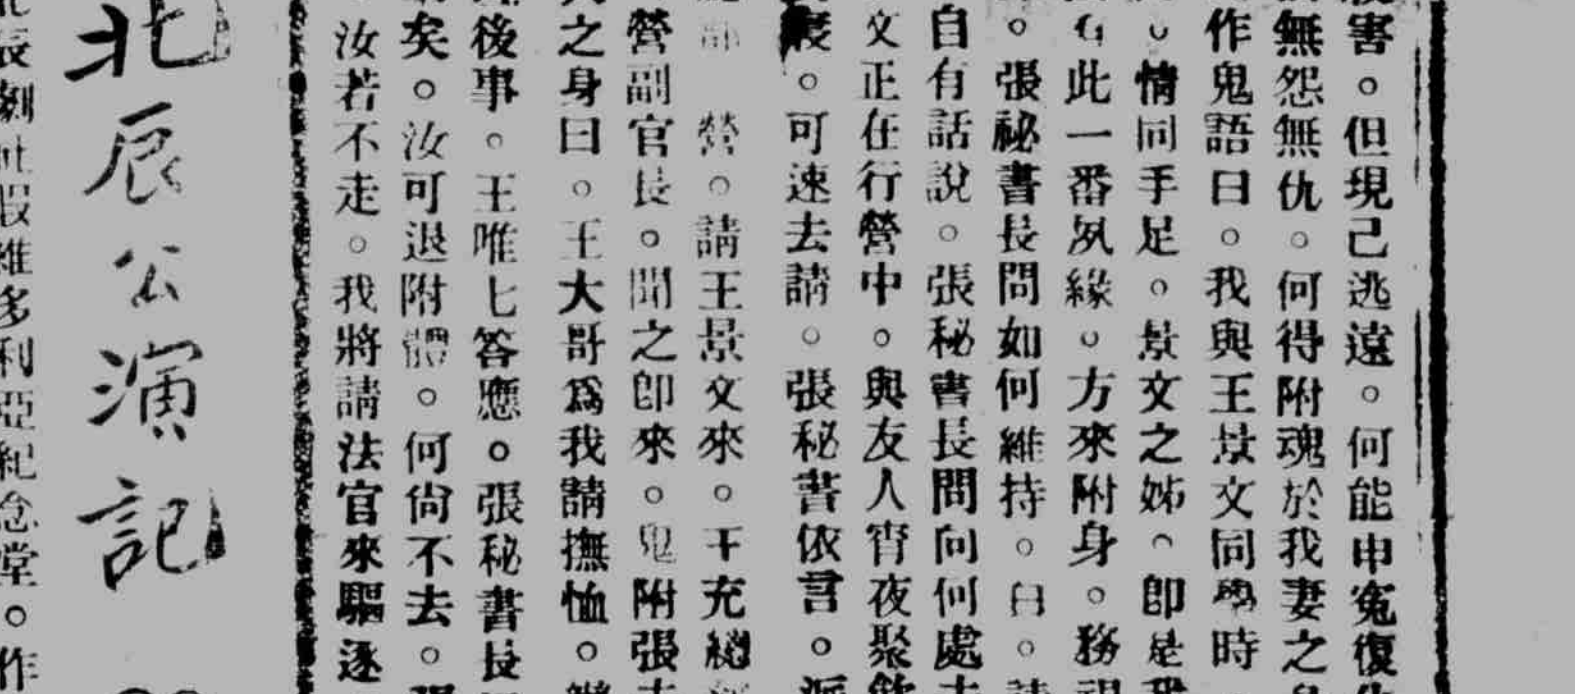 害。但現己逃遠。何能申寃復
無怨無仇。何得附魂於我妻之
作鬼語曰。我與王景文同學時
。情同手足。景文之姊。即是我
有此一番夙緣。方來附身。務
。張秘書長問如何維持。曰。請
自有話說。張秘書長問向何處去
文正在行營中。與友人宵夜聚飲
。可速去請。張秘書依言。派
部 營。請王景文來。王充總
營副官長。聞之即來。鬼附張夫
之身曰。王大哥爲我請撫恤。
後事。王唯七答應。張秘書長
矣。汝可退附體。何尙不去。張
汝若不走。我將請法官來驅逐
北辰公演記
辰劇社假維多利亞紀念堂。作